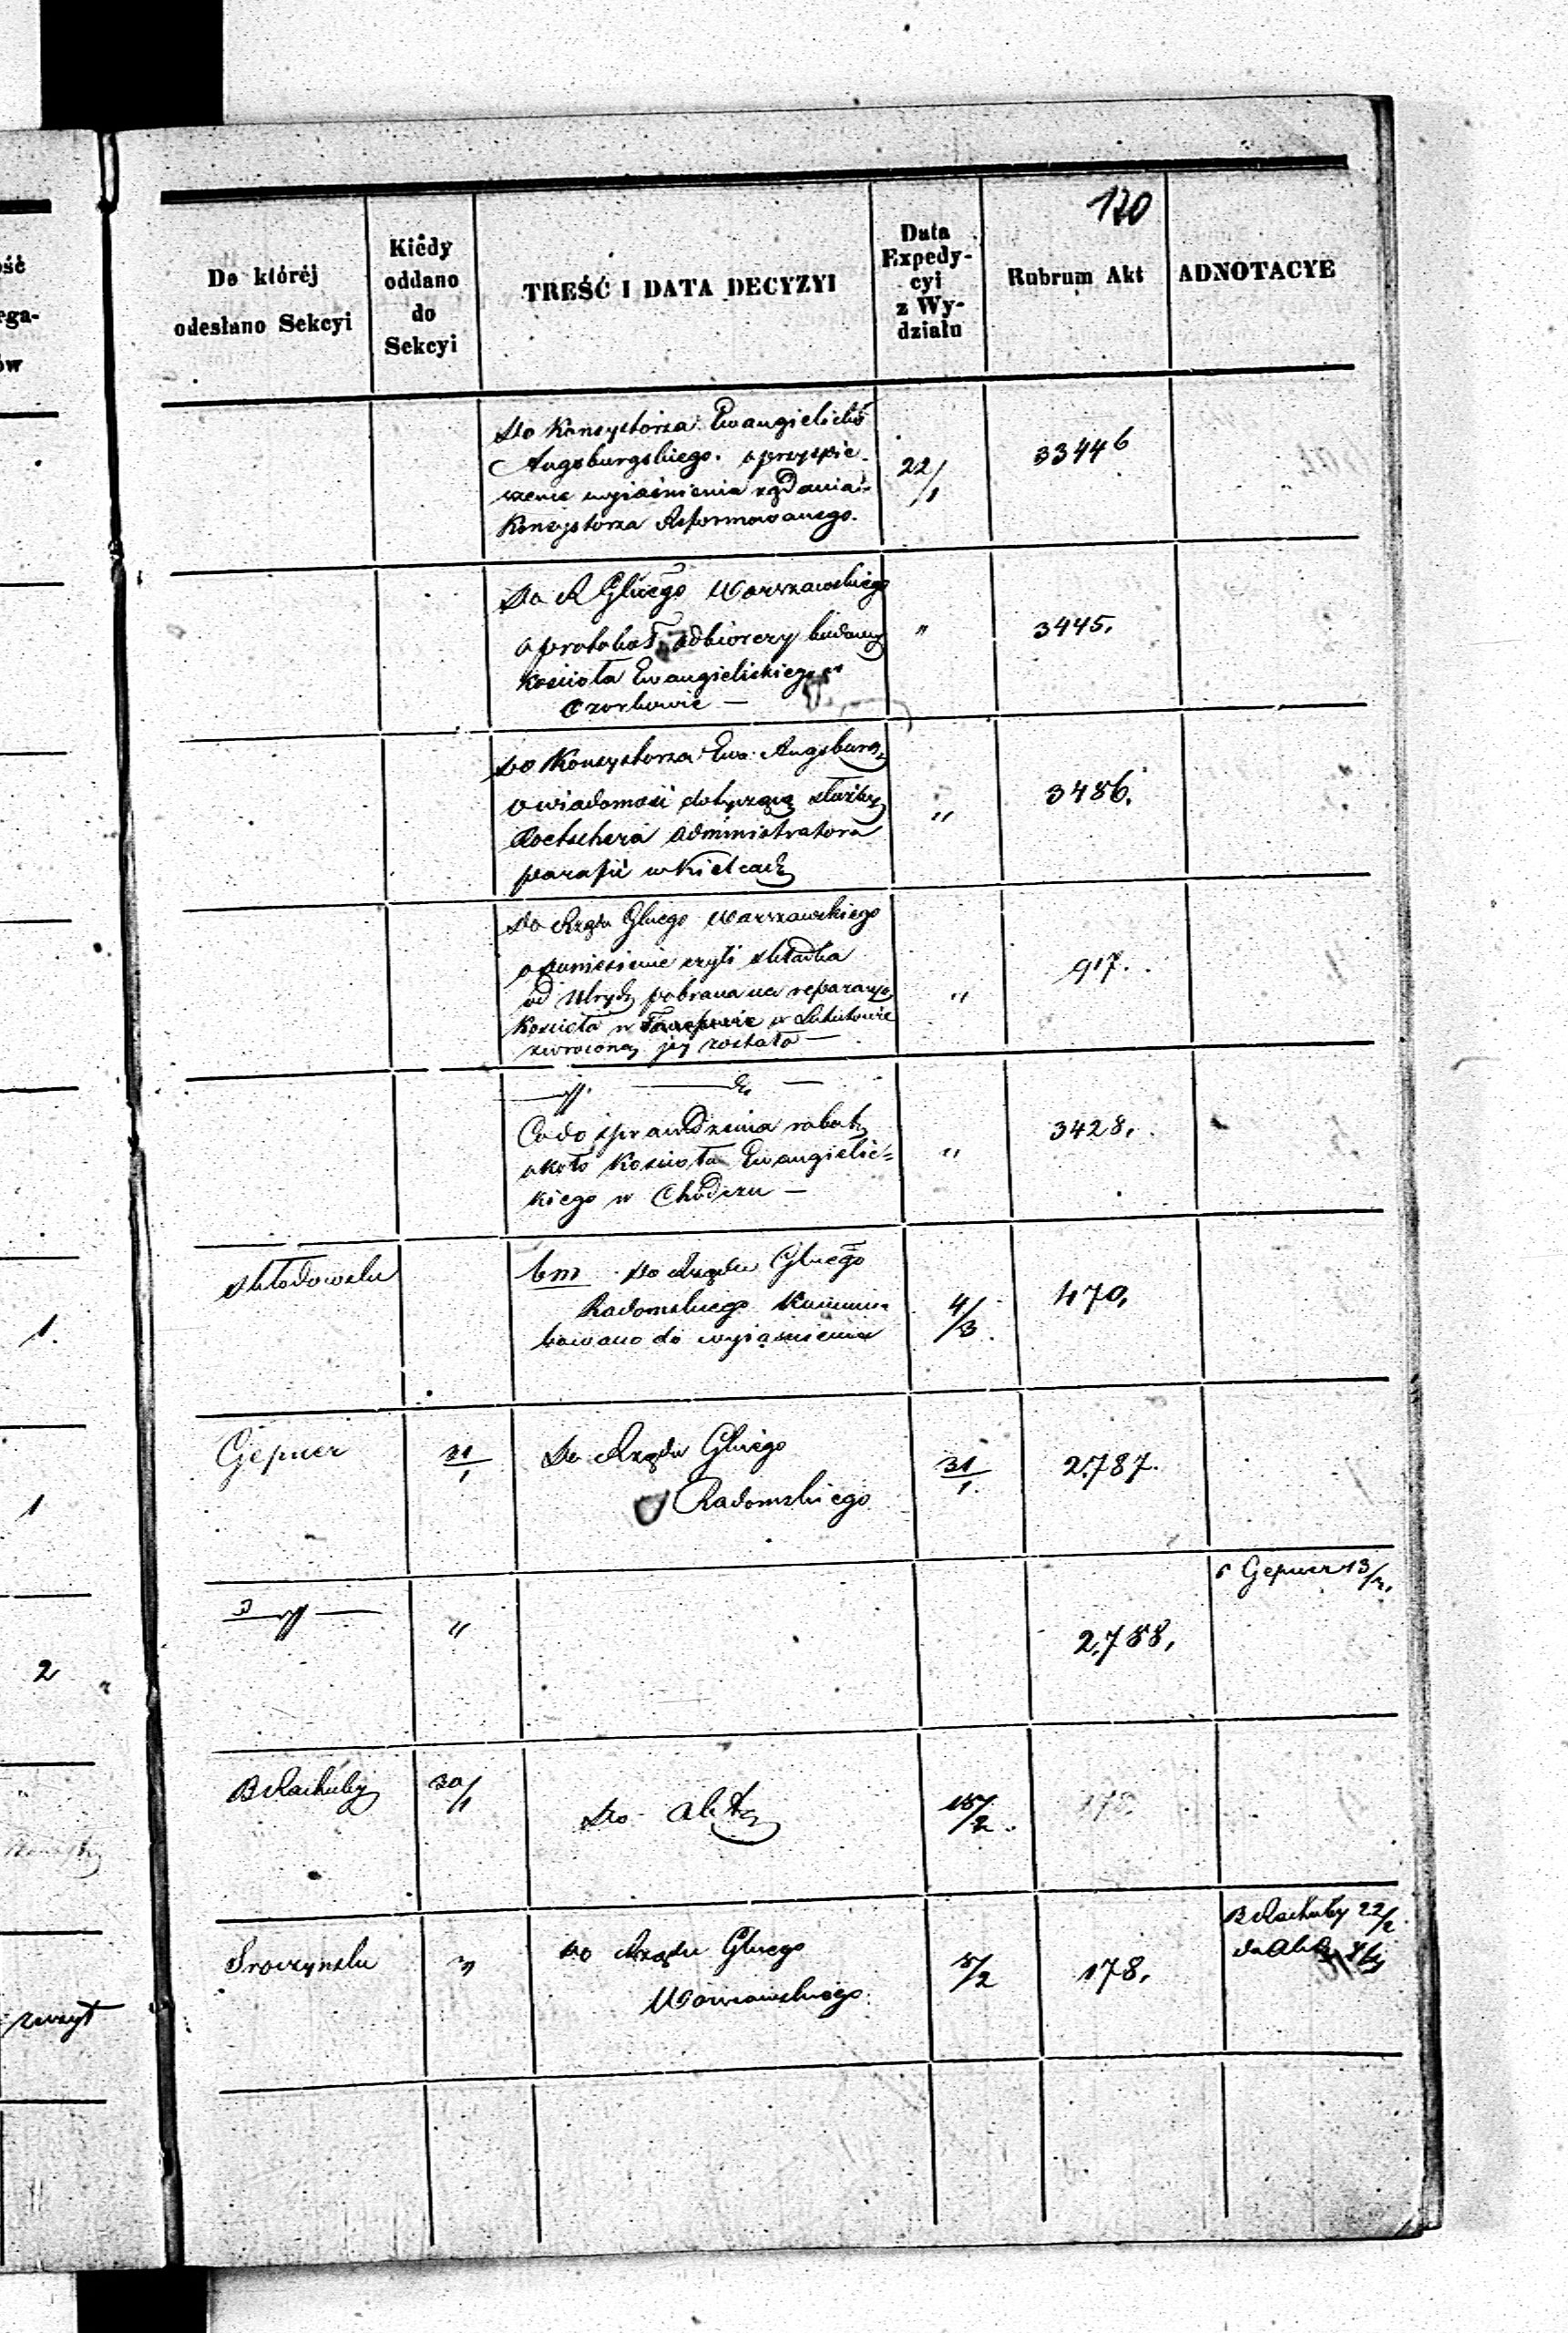 170
Do któréj
odesłano Sekcyi
Kiédy
oddano
do
Sekcyi
TREŚĆ I DATA DECYZYI
Data
Expedy-
cyi
z Wy-
działu
Rubrum Akt
ADNOTACYE
Do Konsystorza Ewangielicko
Augsburgskiego. o przyspie-
szenie wyjaśnienia żądania
Konsystorza Reformowanego.
22/1
33446
Do R Glnego Warszawskiego
o protokół odbiorczy budowy
Kościoła Ewangielickiego w
Ozorkowie —
"
3445.
Do Konsystorza Ewa. Augsburg.
o wiadomość dotyczącą służby
administratora
parafii w Kielcach
"
3486.
Do Rządu Glnego Warszawskiego
o doniesienie czyli składka
od pobrana na reparacyę
Kościoła w w Lututowie
zwroconą jej została —
"
917.
Co do sprawdzenia robot
około Kościoła Ewangielic=
kiego w Chodczu —
"
3428.
Skłodowski
bm Do Rządu Glnego
Radomskiego
do wyjaśnienia
4/3
470.
1.
Gepner
31/1
Do Rządu Glnego
Radomskiego
31/1
2787.
1
"
2788.
Gepner 13/2.
2
B Rachuby
30/1
Do akt
15/2.
178.
Sroczynski
"
Do Rządu Glnego
Warszawskiego.
5/2
178.
B Rachuby 22/2
do Akt
zeszyt